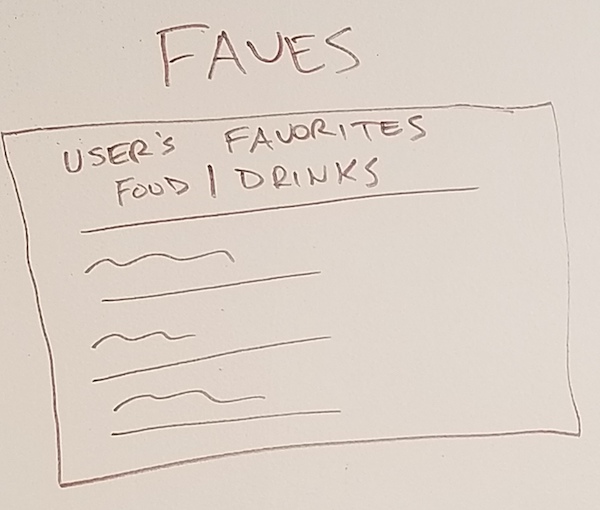 FAVES
USER'S FAVORITES
FOOD | DRINKS